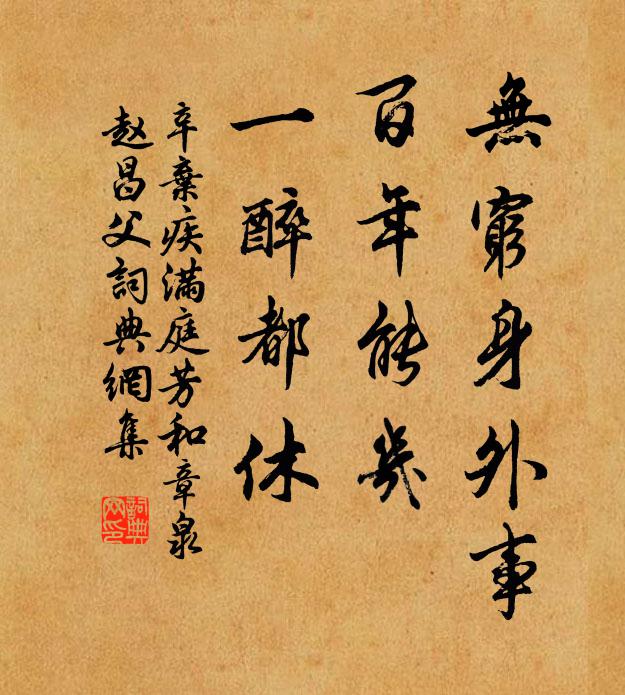 無窮身外事
百年能幾
一醉都休
辛棄疾满庭芳和章泉
赵昌父詞典網集
詞典
网印